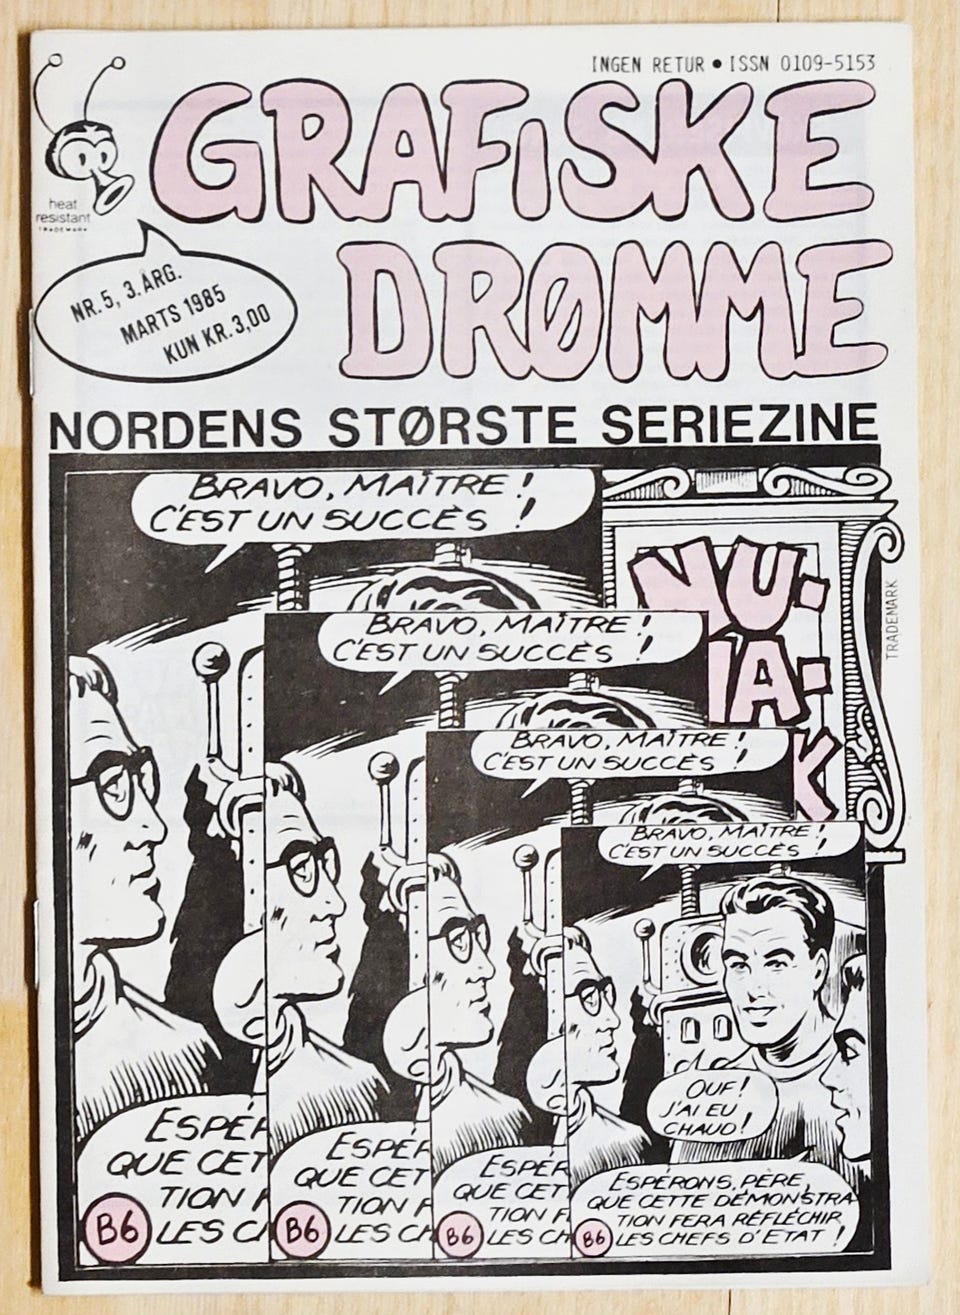 INGEN RETUR • ISSN 0109-5153
GRAFiSKE
DRØMME
heat
resistant
TRADEMARK
NR. 5, 3. ÅRG.
MARTS 1985
KUN KR. 3,00
NORDENS STØRSTE SERIEZINE
BRAVO, MAÎTRE !
C'EST UN SUCCÈS !
NU-
IA-
K
TRADEMARK
BRAVO, MAÎTRE !
C'EST UN SUCCÈS !
BRAVO, MAÎTRE !
C'EST UN SUCCÈS !
BRAVO, MAÎTRE !
C'EST UN SUCCÈS !
OUF!
J'AI EU
CHAUD!
ESPÉR
QUE CET
TION F
LES CH
B6
ESPÉR
QUE CET
TION F
LES CH
B6
ESPÉR
QUE CET
TION F
LES CH
B6
ESPÉRONS, PÈRE,
QUE CETTE DÉMONSTRA-
TION FERA RÉFLÉCHIR
LES CHEFS D'ÉTAT !
B6